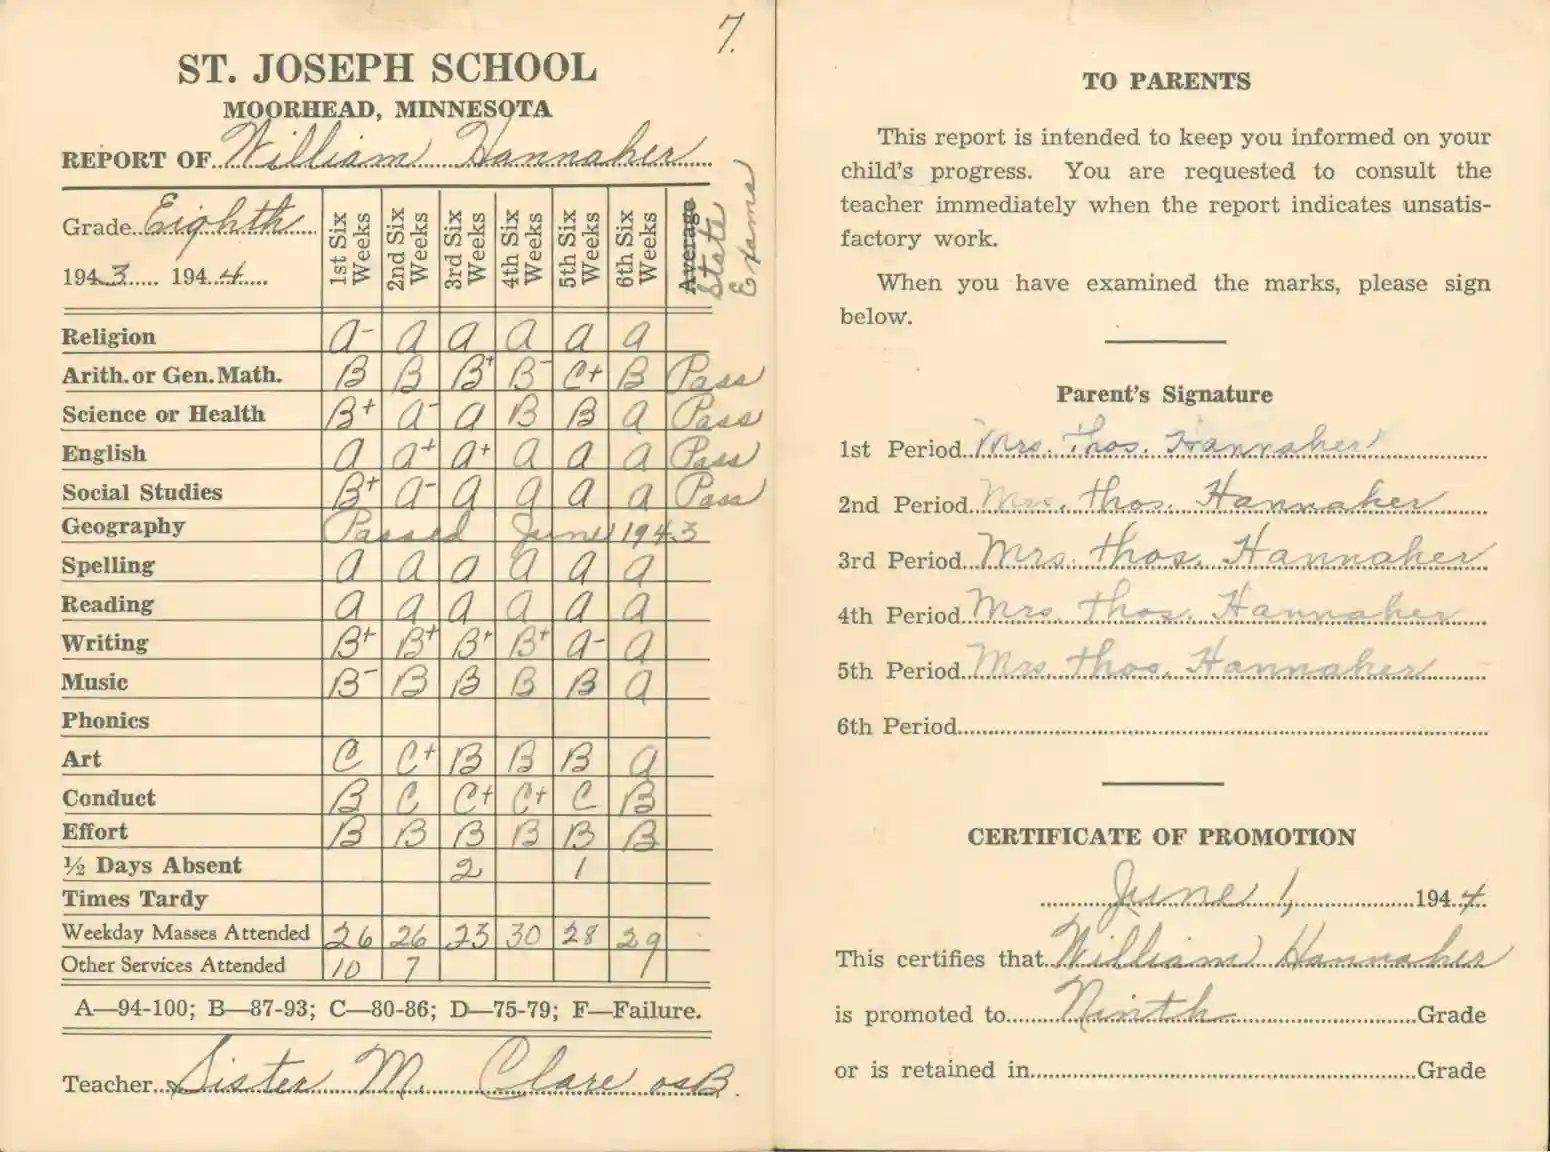 7.
ST. JOSEPH SCHOOL
MOORHEAD, MINNESOTA
REPORT OF William Hannaher
Grade Eighth
1943 1944
1st Six Weeks
2nd Six Weeks
3rd Six Weeks
4th Six Weeks
5th Six Weeks
6th Six Weeks
Average
State Exams
Religion a- a a a a a
Arith. or Gen. Math. B B B+ B- C+ B Pass
Science or Health B+ a- a B B a Pass
English a a+ a+ a a a Pass
Social Studies B+ a- a a a a Pass
Geography Passed June 1943
Spelling a a a a a a
Reading a a a a a a
Writing B+ B+ B+ B+ a- a
Music B- B B B B a
Phonics
Art C C+ B B B a
Conduct B C C+ C+ C B
Effort B B B B B B
½ Days Absent 2 1
Times Tardy
Weekday Masses Attended 26 26 23 30 28 29
Other Services Attended 10 7
A—94-100; B—87-93; C—80-86; D—75-79; F—Failure.
Teacher Sister M. Clare OSB.
TO PARENTS
This report is intended to keep you informed on your
child's progress. You are requested to consult the
teacher immediately when the report indicates unsatis-
factory work.
When you have examined the marks, please sign
below.
Parent's Signature
1st Period Mrs. Thos. Hannaher
2nd Period Mrs. Thos. Hannaher
3rd Period Mrs. Thos. Hannaher
4th Period Mrs. Thos. Hannaher
5th Period Mrs. Thos. Hannaher
6th Period
CERTIFICATE OF PROMOTION
June 1, 1944
This certifies that William Hannaher
is promoted to Ninth Grade
or is retained in Grade